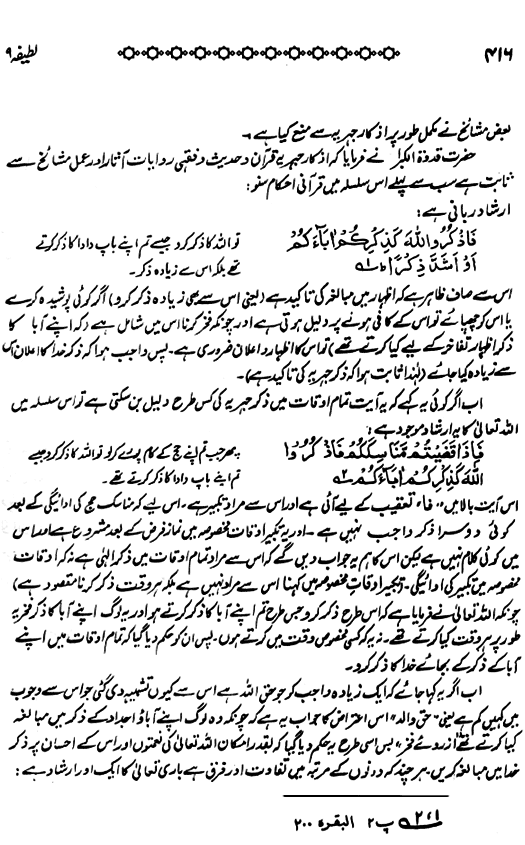 لطیفہ ۹ ۴۱۶
بعض مشائخ نے مکمل طور پر اذکار جہریہ سے منع کیا ہے۔
حضرت قدوۃ الکبرٰ نے فرمایا کہ اذکار جہریہ قرآن و حدیث و فقہی روایات آثار اور عمل مشائخ سے
ثابت ہے سب سے پہلے اس سلسلہ میں قرآنی احکام سنو :
ارشاد ربانی ہے :
فَاذْكُرُوا اللهَ كَذِكْرِكُمْ اٰبَآءَكُمْ تو اللہ کا ذکر کرو جیسے تم اپنے باپ دادا کا ذکر کرتے
اَوْ اَشَدَّ ذِكْرًا ؕ ۱ تھے بلکہ اس سے زیادہ ذکر۔
اس سے صاف ظاہر ہے کہ اظہار میں مبالغہ کی تاکید ہے (یعنی اس سے بھی زیادہ ذکر کرو) اگر کوئی پوشیدہ کرے
یا اس کو چھپائے تو اس کے کافی ہونے پر دلیل ہوتی ہے اور چونکہ فخر کرنا اس میں شامل ہے (کہ اپنے آبا کا
ذکر اظہار تفاخر کے لیے کیا کرتے تھے) تو اس کا اظہار و اعلان ضروری ہے۔ پس واجب ہوا کہ ذکر خدا کا اعلان اس
سے زیادہ کیا جائے (لہٰذا ثابت ہوا کہ ذکر جہریہ کی تاکید ہے)۔
اب اگر کوئی یہ کہے کہ یہ آیت تمام اوقات میں ذکر جہریہ کی کس طرح دلیل بن سکتی ہے تو اس سلسلہ میں
اللہ تعالیٰ کا یہ ارشاد موجود ہے :
فَاِذَا قَضَيْتُمْ مَّنَاسِكَكُمْ فَاذْكُرُوا پھر جب تم اپنے حج کے کام پورے کر لو تو اللہ کا ذکر کرو جیسے
اللهَ كَذِكْرِكُمْ اٰبَآءَكُمْ ۲ تم اپنے باپ دادا کا ذکر کرتے تھے۔
اس آیت بالا میں "فاء" تعقیب کے لیے آئی ہے اور اس سے مراد تکبیر ہے۔ اس لیے کہ مناسک حج کی ادائیگی کے بعد
کوئی دوسرا ذکر واجب نہیں ہے۔ اور یہ تکبیر اوقات مخصوصہ میں نماز فرض کے بعد مشروع ہے اور اس
میں کوئی کلام نہیں ہے لیکن اس کا ہم یہ جواب دیں گے کہ اس سے مراد تمام اوقات میں ذکر الٰہی ہے نہ کہ اوقات
مخصوصہ میں تکبیر کی ادائیگی۔ (تکبیر اوقات مخصوصہ میں کہنا اس سے مراد نہیں ہے بلکہ ہر وقت ذکر کرنا مقصود ہے)
چونکہ اللہ تعالیٰ نے فرمایا ہے کہ اس طرح ذکر کرو جس طرح تم اپنے آبا کا ذکر کرتے ہو اور یہ لوگ اپنے آبا کا ذکر فخریہ
طور پر ہر وقت کیا کرتے تھے۔ نہ یہ کہ کسی مخصوص وقت میں کرتے ہوں۔ پس ان کو حکم دیا گیا کہ تمام اوقات میں اپنے
آبا کے ذکر کے بجائے خدا کا ذکر کرو۔
اب اگر یہ کہا جائے کہ ایک زیادہ واجب کو جو حق اللہ ہے اس سے کیوں تشبیہ دی گئی جو اس سے وجوب
میں کہیں کم ہے یعنی "حق والد" اس اعتراض کا جواب یہ ہے کہ چونکہ وہ لوگ اپنے آباؤ اجداد کے ذکر میں مبالغہ
کیا کرتے تھے ازروئے فخر" پس اسی طرح یہ حکم دیا گیا کہ بقدر امکان اللہ تعالیٰ کی نعمتوں اور اس کے احسان پر ذکر
خدا میں مبالغہ کریں۔ ہر چند کہ دونوں کے مرتبہ میں تفاوت اور فرق ہے باری تعالیٰ کا ایک اور ارشاد ہے :
۱، ۲ پ ۲ البقرہ ۲۰۰